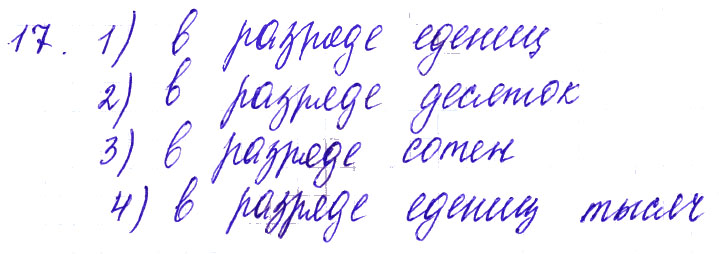 17. 1) в разряде едениц
2) в разряде десяток
3) в разряде сотен
4) в разряде едениц тысяч